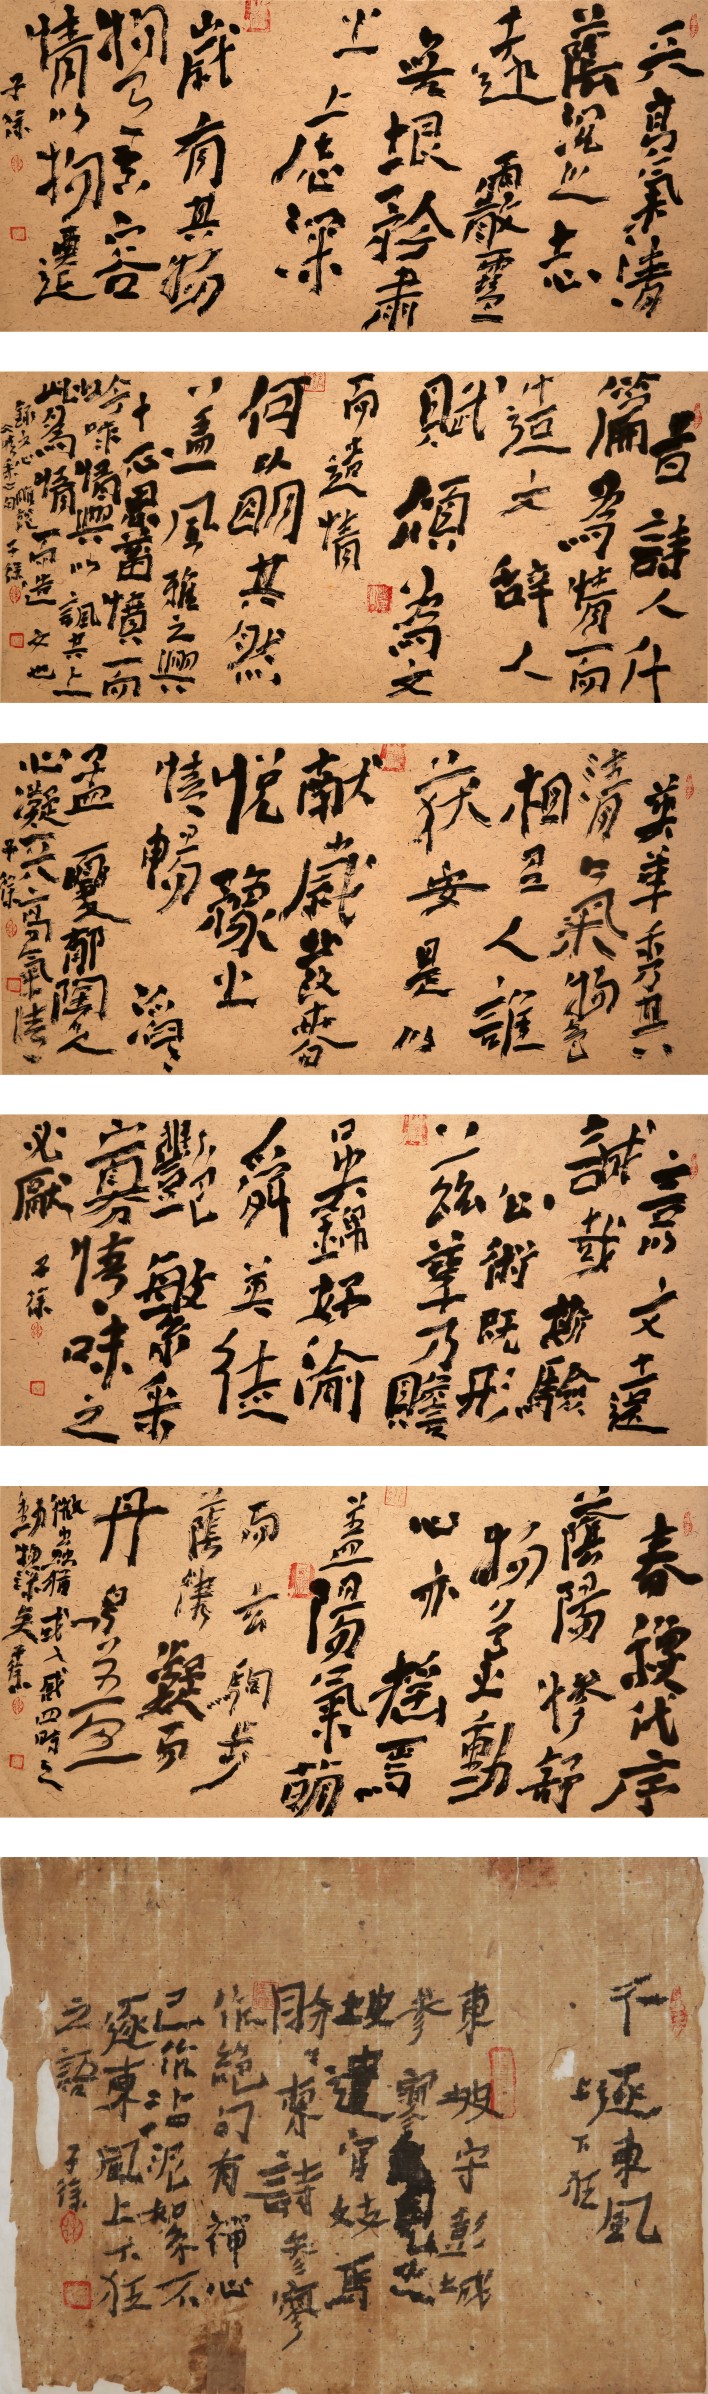 天高氣清
蔭沉之志
遠霰雪
無垠矜肅
之慮深
歲有其物
物有其容
情以物遷
子徐
昔詩人什
篇為情而
造文辞人
賦頌為文
而造情
何以明其然
蓋風雅之興
志思蓄憤而
吟咏情興以諷其上
此為情而造文也
錄文心雕龍
情采句 子徐
英華秀其
清氣物色
相召人誰
獲安是以
獻歲發春
悅豫之
情暢滔滔
孟夏郁陶之
心凝天高氣清
子徐
言以文遠
誠哉斯驗
心術既形
英華乃贍
吳錦好渝
舜英徒
艷繁采
寡情味之
必厭
子徐
春秋代序
蔭陽慘舒
物色之動
心亦搖焉
蓋陽氣萌
而玄駒步
蔭律凝而
丹鳥羞
微蟲猶或入感四時之
動物深矣 子徐
不逐東風
上下狂
東坡守彭城
參寥
坡遣官妓馬
盼盼索詩參寥
作絕句有禪心
已作沾泥絮不
逐東風上下狂
之語
子徐